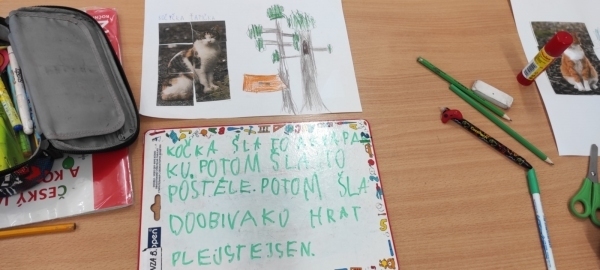 KOČKA ŠLA
KU. POTOM ŠLA TO
POSTELE. POTOM ŠLA
DOOBIVAKU HRAT
PLEJSTEJSEN.
ČESKÝ JA
A KO